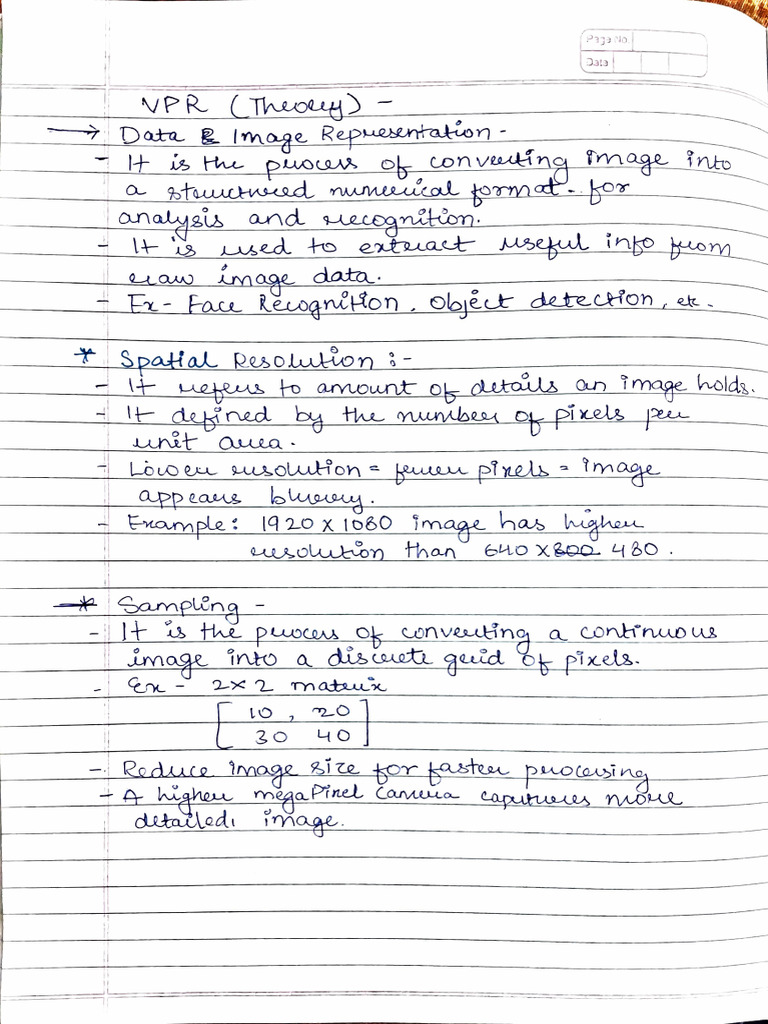 Page No.
Date
VPR (Theory) -
→ Data & Image Representation -
- It is the process of converting image into
a structured numerical format. for
analysis and recognition.
- It is used to extract useful info from
raw image data.
- Ex - Face Recognition, Object detection, etc.
* Spatial Resolution :-
- It refers to amount of details an image holds.
- It defined by the number of pixels per
unit area.
- Lower resolution = fewer pixels = image
appears blurry.
- Example: 1920 x 1080 image has higher
resolution than 640 x 800 480.
* Sampling -
- It is the process of converting a continuous
image into a discrete grid of pixels.
- Ex - 2x2 matrix
[ 10 , 20
30 40 ]
- Reduce image size for faster processing
- A higher megaPixel Camera captures more
detailed, image.